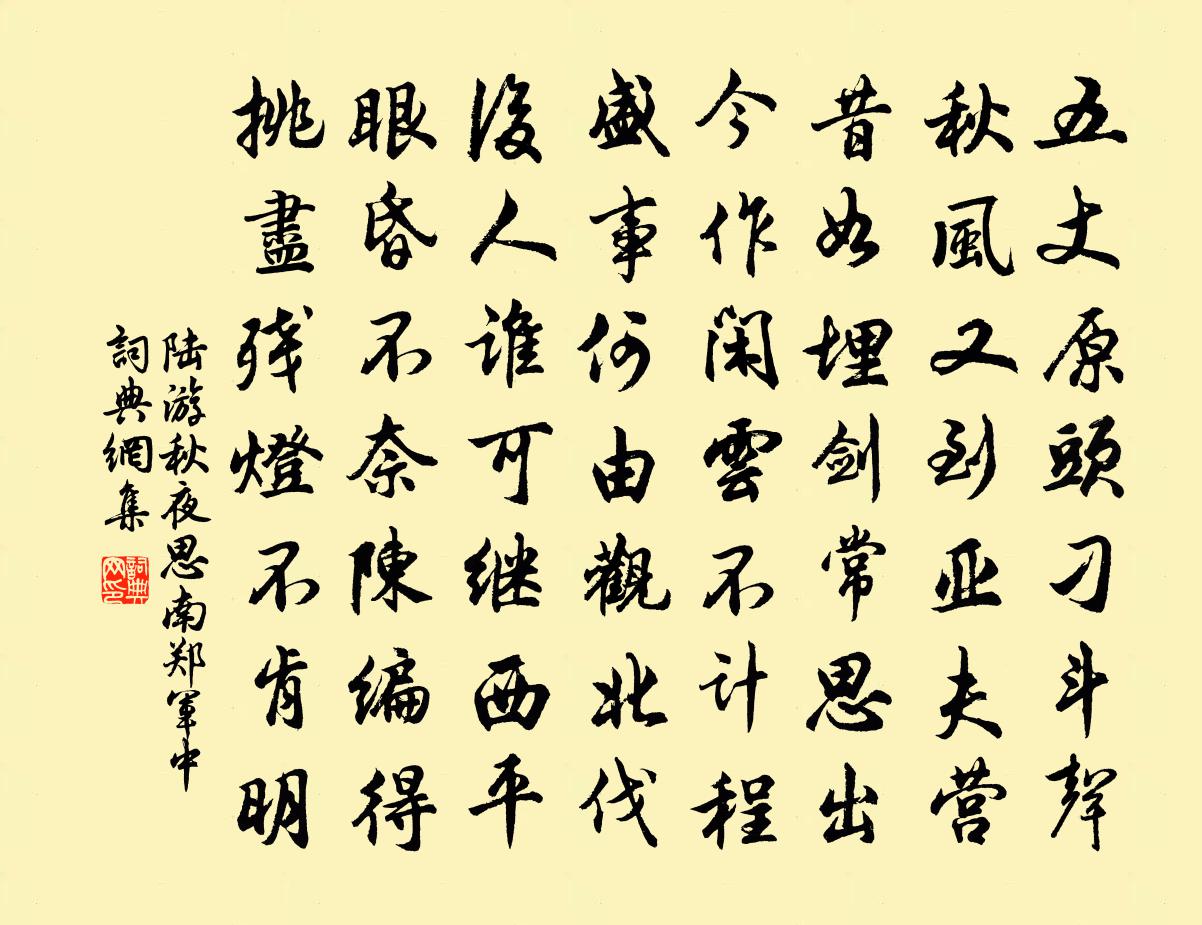 五丈原頭刁斗聲
秋風又到亚夫营
昔如埋剑常思出
今作闲雲不计程
盛事何由觀北伐
後人谁可继西平
眼昏不奈陳编得
挑盡残燈不肯明
陆游秋夜思南郑軍中
詞典網集
詞典网印